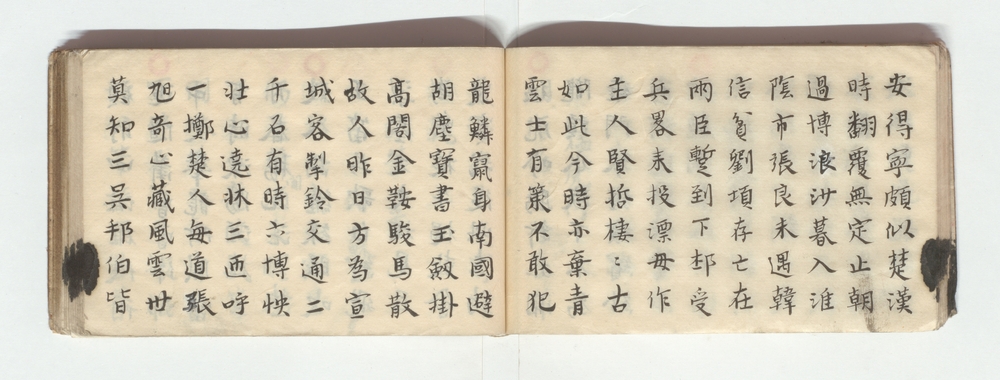 安得寧頗似楚漢
時翻覆無定止朝
過博浪沙暮入淮
陰市張良未遇韓
信貧劉項存亡在
兩臣暫到下邳受
兵畧来投漂母作
主人賢哲棲〻古
如此今時亦棄青
雲士有策不敢犯
龍鱗竄身南國避
胡塵寶書玉劍掛
高閣金鞍駿馬散
故人昨日方為宣
城客掣鈴交通二
千石有時六博快
壯心遶牀三匝呼
一擲楚人每道張
旭奇心藏風雲世
莫知三吳邦伯皆